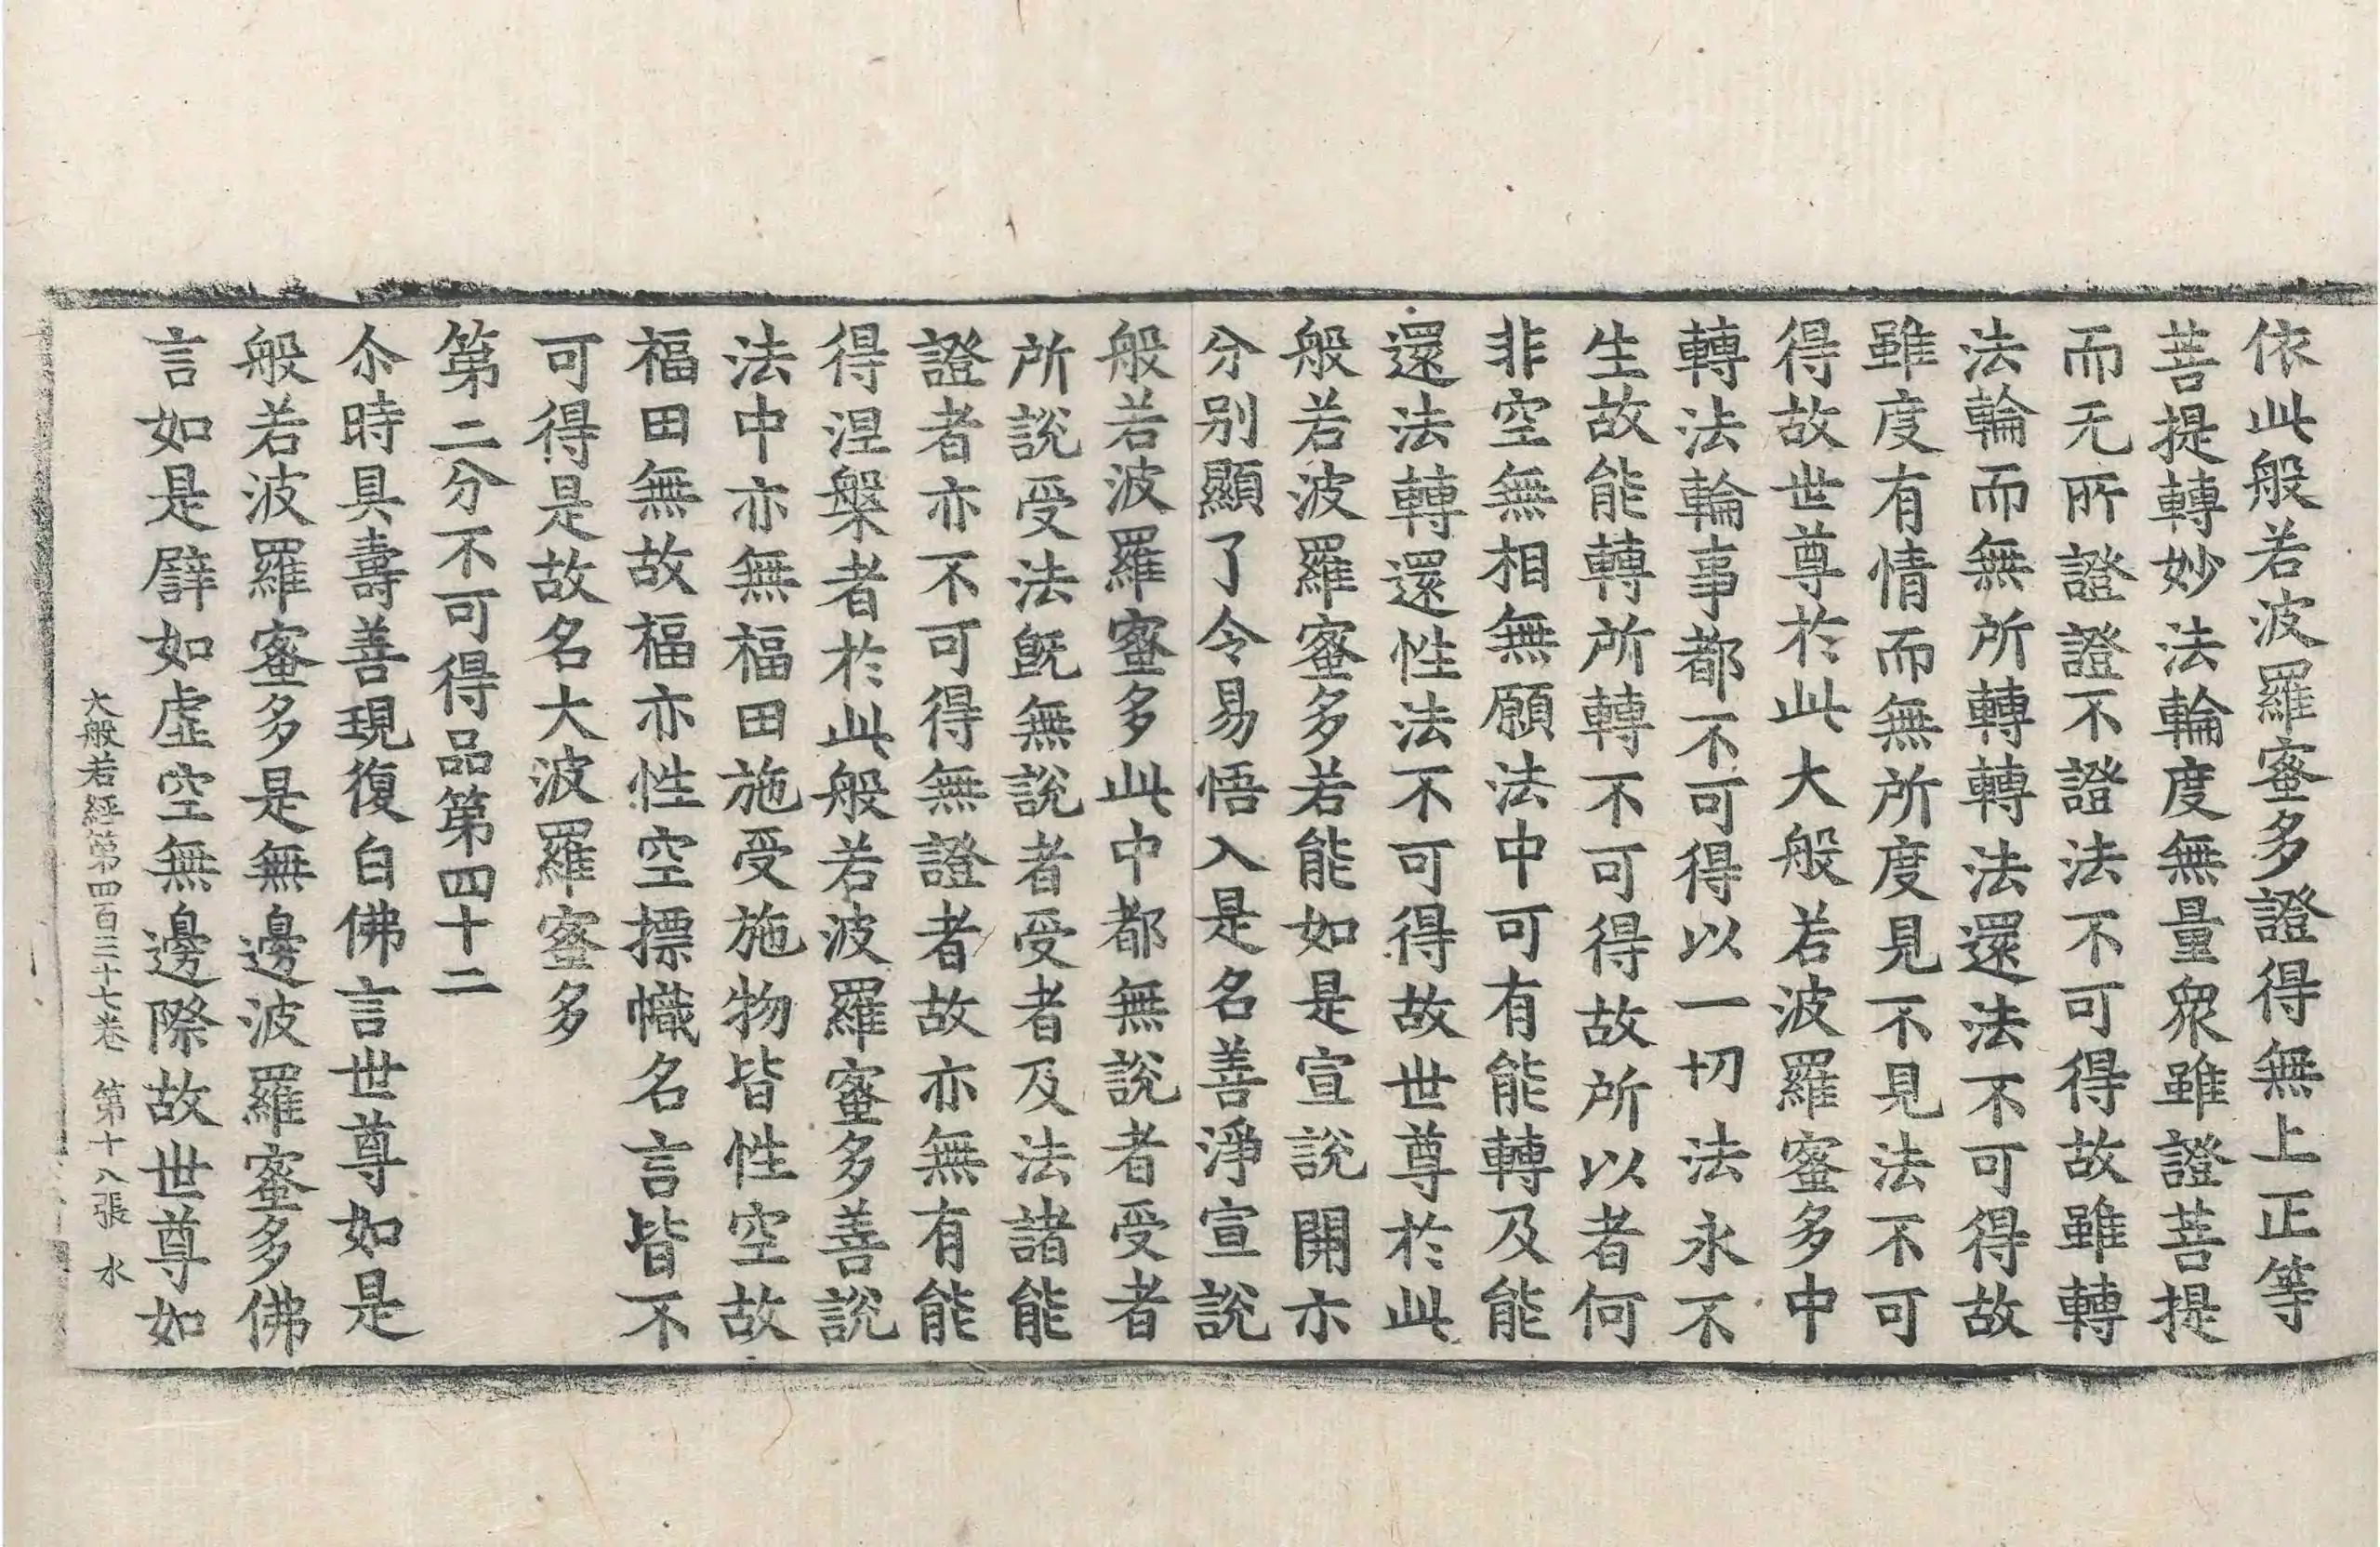 依此般若波羅蜜多證得無上正等
菩提轉妙法輪度無量衆雖證菩提
而无所證證不證法不可得故雖轉
法輪而無所轉轉法還法不可得故
雖度有情而無所度見不見法不可
得故世尊於此大般若波羅蜜多中
轉法輪事都不可得以一切法永不
生故能轉所轉不可得故所以者何
非空無相無願法中可有能轉及能
還法轉還性法不可得故世尊於此
般若波羅蜜多若能如是宣說開示
分别顯了令易悟入是名善淨宣說
般若波羅蜜多此中都無說者受者
所說受法旣無說者受者及法諸能
證者亦不可得無證者故亦無有能
得涅槃者於此般若波羅蜜多善說
法中亦無福田施受施物皆性空故
福田無故福亦性空摽幟名言皆不
可得是故名大波羅蜜多
第二分不可得品第四十二
尒時具壽善現復白佛言世尊如是
般若波羅蜜多是無邊波羅蜜多佛
言如是譬如虛空無邊際故世尊如
大般若經第四百三十七卷 第十八張 水